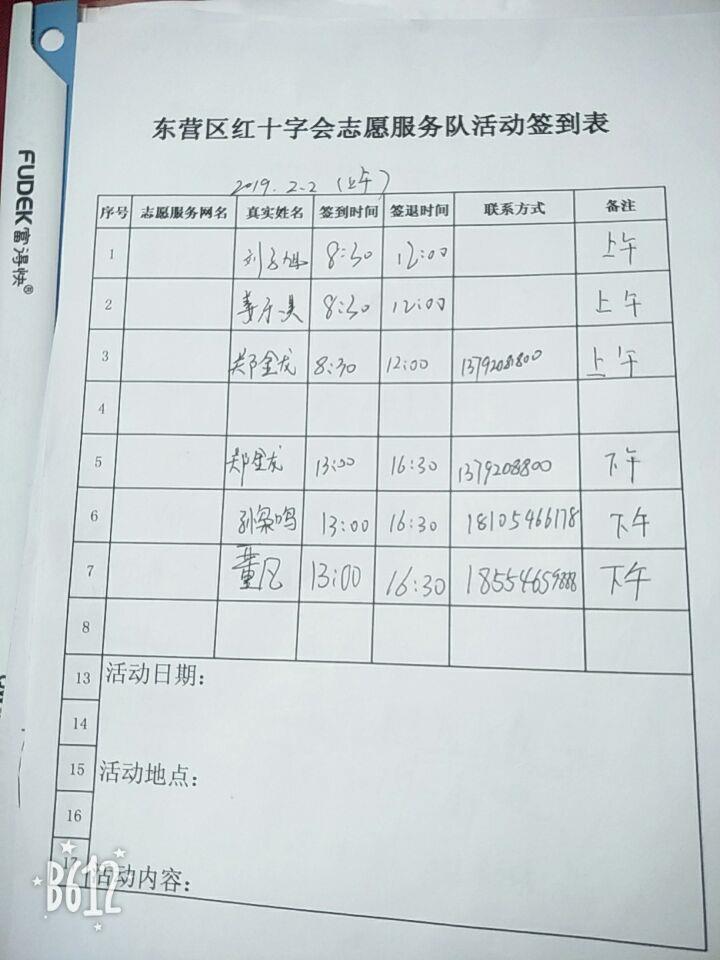 FUDEK富得快®
东营区红十字会志愿服务队活动签到表
2019.2.2 (上午)
序号 志愿服务网名 真实姓名 签到时间 签退时间 联系方式 备注
1 8:30 12:00 上午
2 8:30 12:00 上午
3 郑金龙 8:30 12:00 上午
4
5 郑金龙 13:00 16:30 1379208800 下午
6 孙枭鸣 13:00 16:30 18105466178 下午
7 董凡 13:00 16:30 18554659888 下午
8
13 活动日期:
14
15 活动地点:
16
17 活动内容:
B612